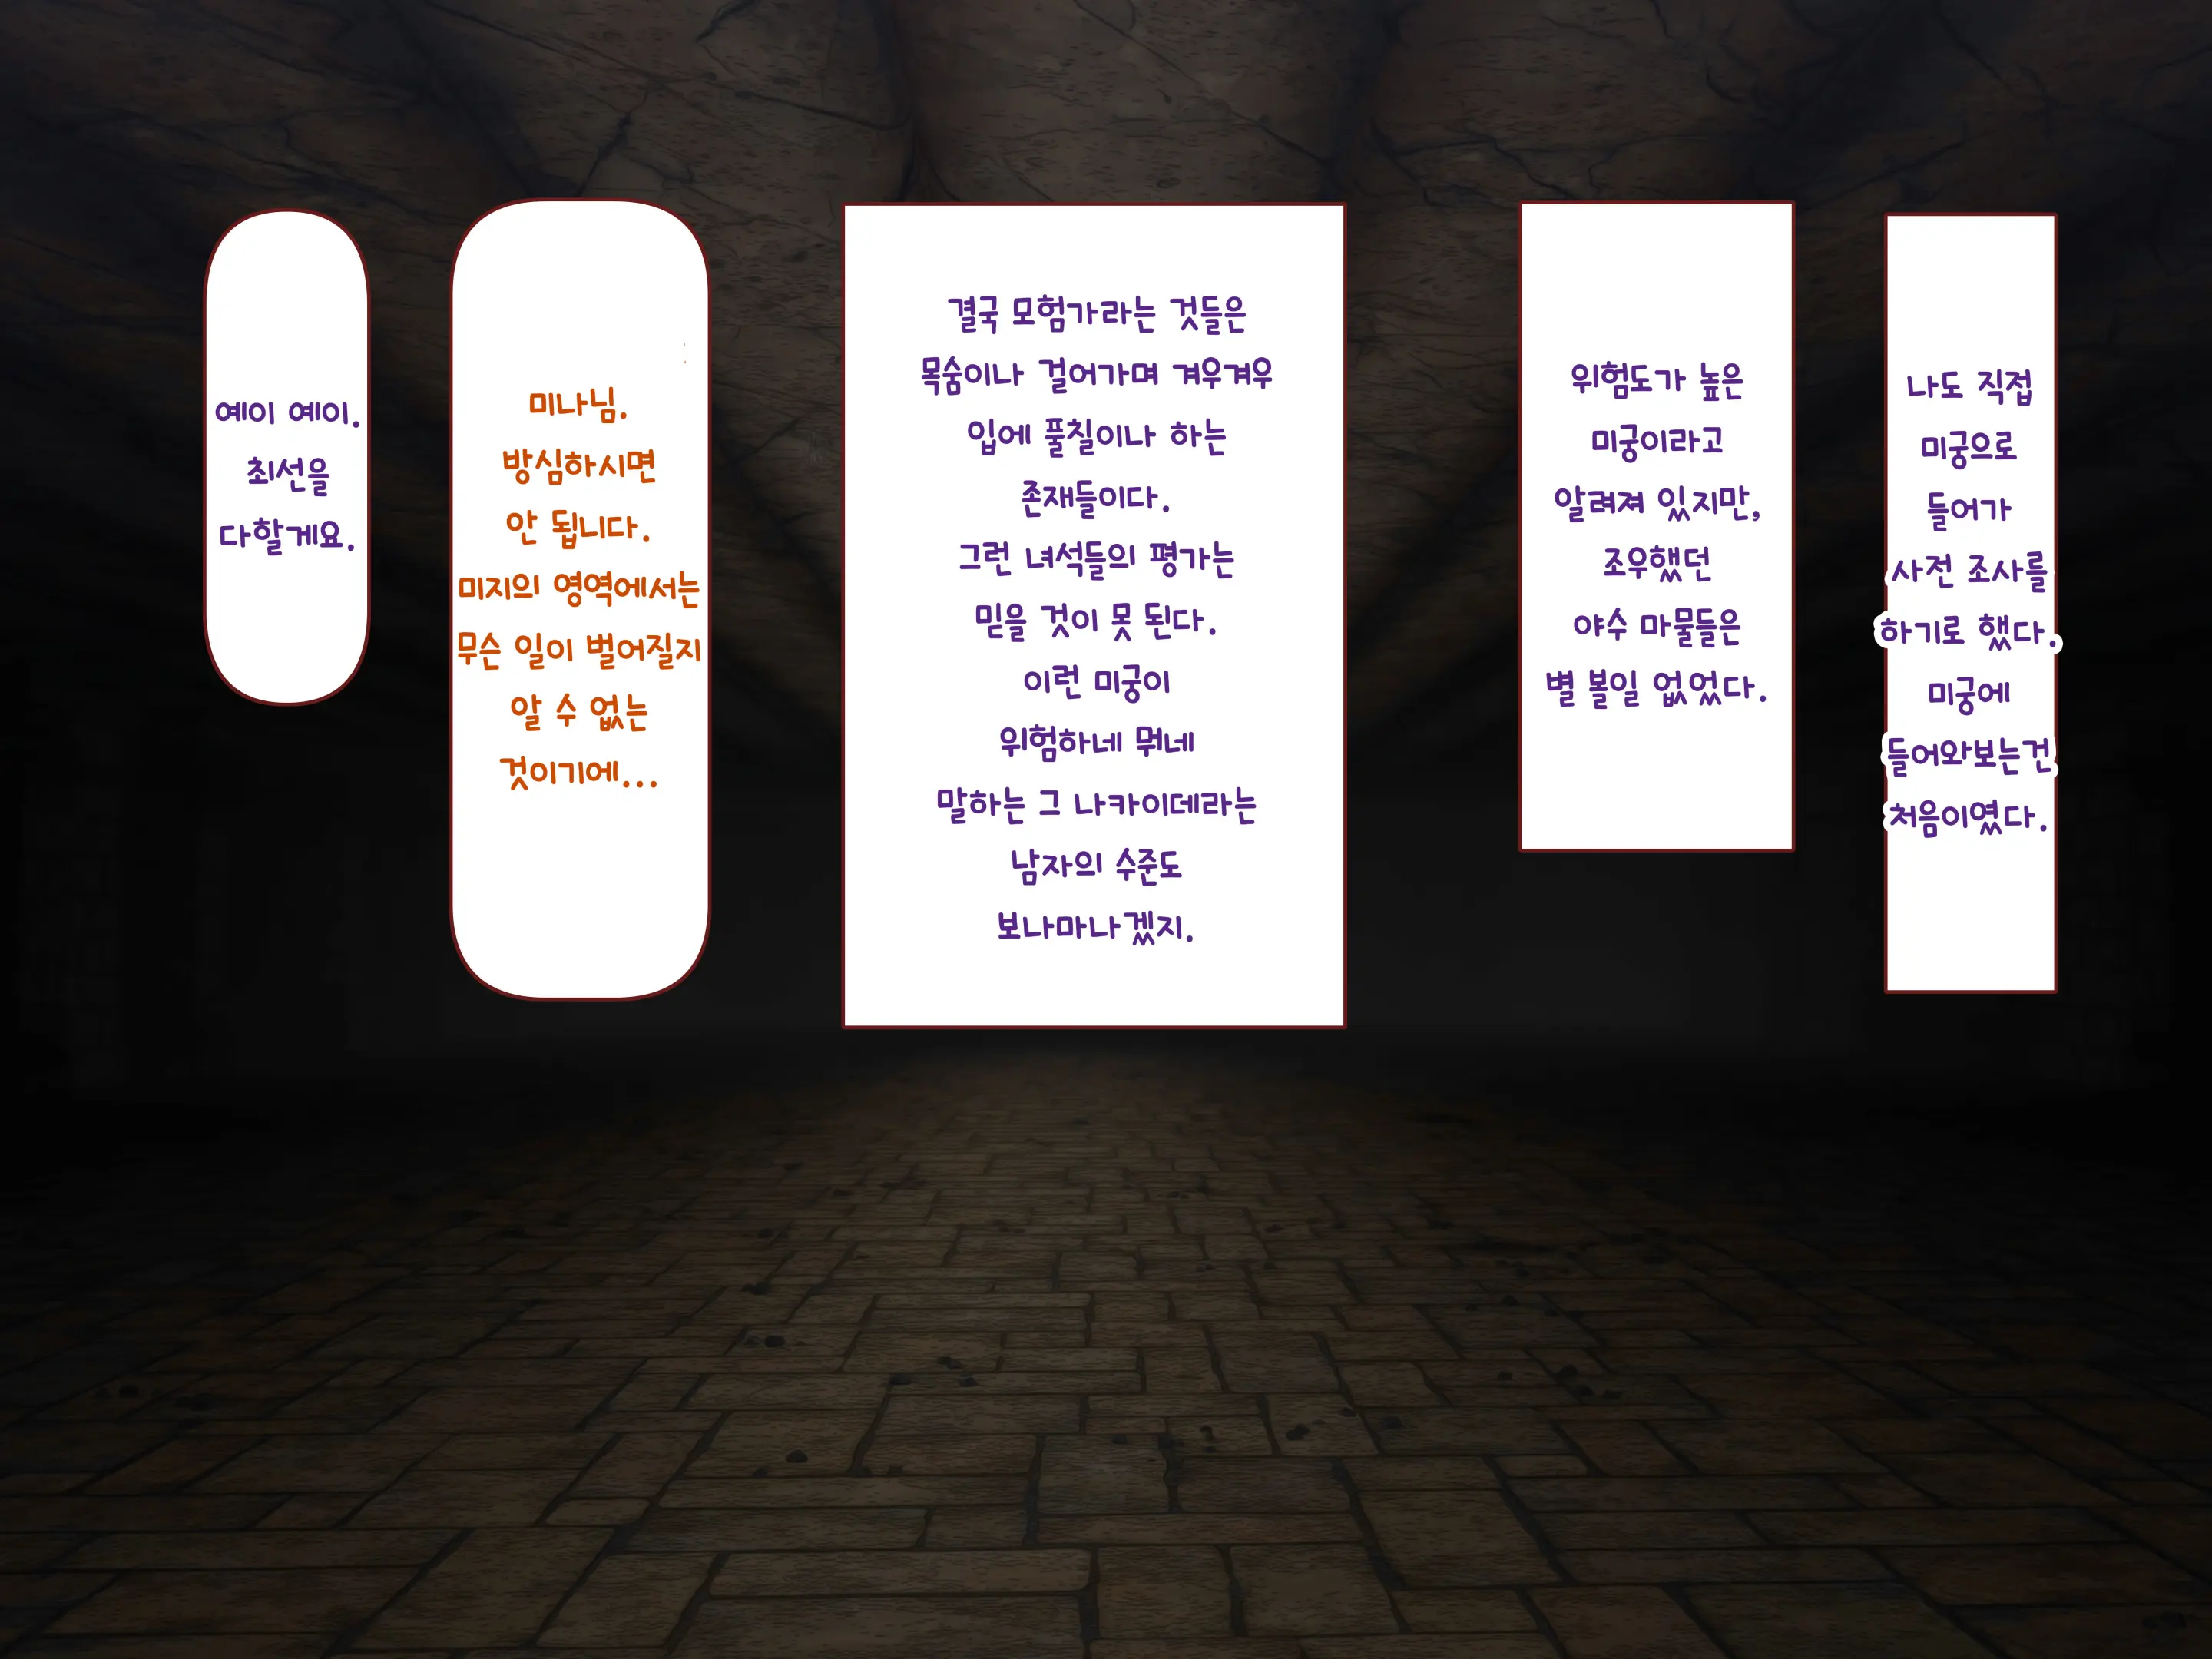 나도 직접
미궁으로
들어가
사전 조사를
하기로 했다.
미궁에
들어와보는건
처음이였다.
위험도가 높은
미궁이라고
알려져 있지만,
조우했던
야수 마물들은
별 볼일 없었다.
결국 모험가라는 것들은
목숨이나 걸어가며 겨우겨우
입에 풀칠이나 하는
존재들이다.
그런 녀석들의 평가는
믿을 것이 못 된다.
이런 미궁이
위험하네 뭐네
말하는 그 나카이데라는
남자의 수준도
보나마나겠지.
미나님.
방심하시면
안 됩니다.
미지의 영역에서는
무슨 일이 벌어질지
알 수 없는
것이기에...
예이 예이.
최선을
다할게요.